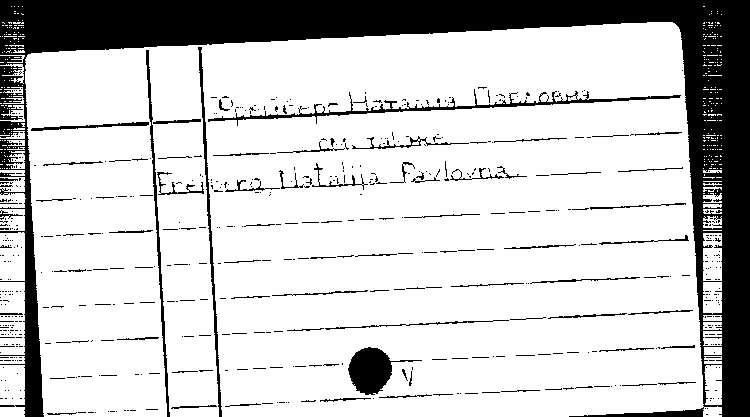 Фрейберг Наталия Павловна
см. также
Freiberg, Natalija Pavlovna
V